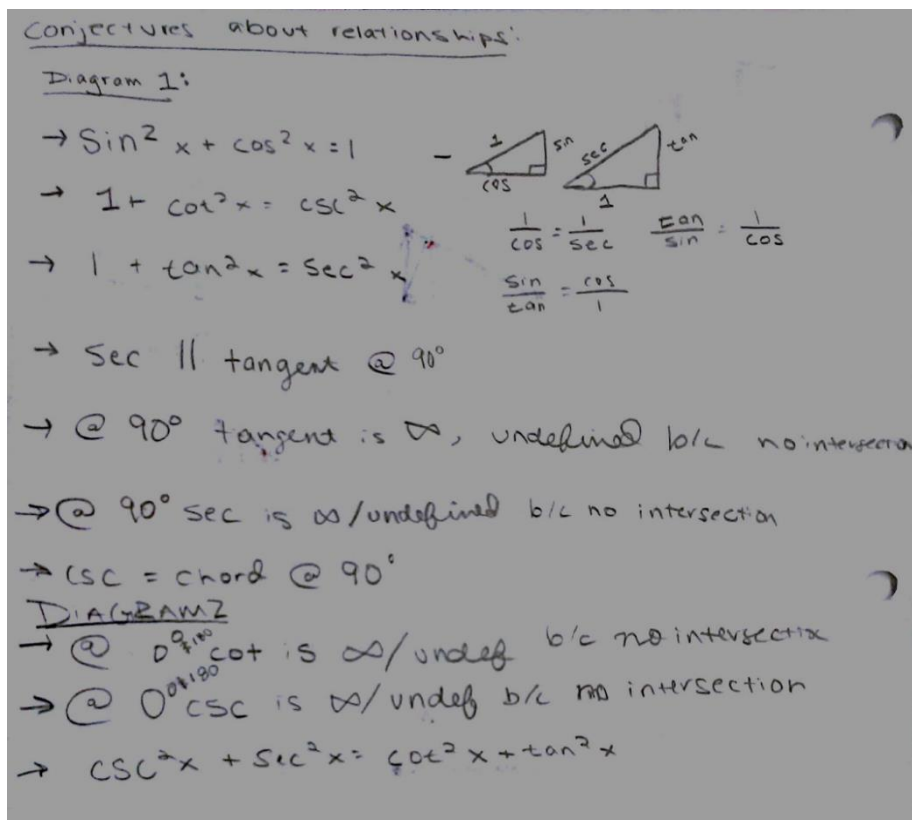 Conjectures about relationships:
Diagram 1:
→ Sin² x + cos² x = 1
1 sin cos
sec tan 1
→ 1 + cot² x = csc² x
1/cos = 1/sec tan/sin = 1/cos
→ 1 + tan² x = sec² x
sin/tan = cos/1
→ Sec || tangent @ 90°
→ @ 90° tangent is ∞, undefined b/c no intersection
→ @ 90° sec is ∞/undefined b/c no intersection
→ csc = chord @ 90°
DIAGRAM 2
→ @ 0° or 180 cot is ∞/undef b/c no intersectix
→ @ 0° or 180 csc is ∞/undef b/c no intersection
→ csc² x + sec² x = cot² x + tan² x